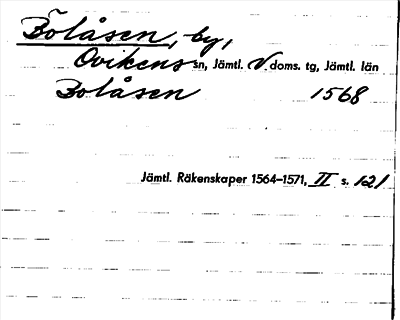 Bölåsen, by,
Ovikens sn, Jämtl. V doms. tg, Jämtl. län
Bolåsen 1568
Jämtl. Räkenskaper 1564–1571, II s. 121